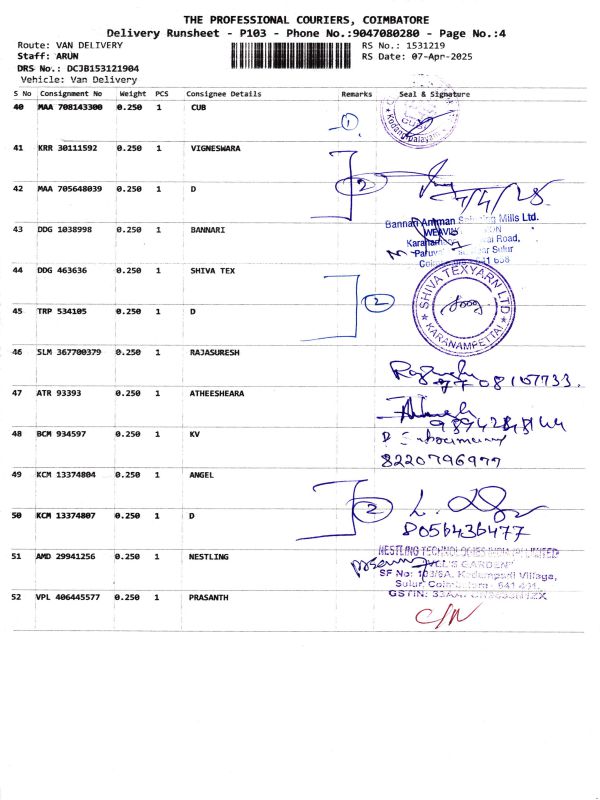 THE PROFESSIONAL COURIERS, COIMBATORE
Delivery Runsheet - P103 - Phone No.:9047080280 - Page No.:4
Route: VAN DELIVERY RS No.: 1531219
Staff: ARUN RS Date: 07-Apr-2025
DRS No.: DCJB153121904
Vehicle: Van Delivery
S No Consignment No Weight PCS Consignee Details Remarks Seal & Signature
40 MAA 708143300 0.250 1 CUB
1
41 KRR 30111592 0.250 1 VIGNESWARA
2
42 MAA 705648039 0.250 1 D
7/4/25
43 DDG 1038998 0.250 1 BANNARI
Bannari Amman Mills Ltd.
Road,
Sulur
44 DDG 463636 0.250 1 SHIVA TEX
SHIVA TEXYARN LTD
KARANAMPETTAI
2
45 TRP 534105 0.250 1 D
46 SLM 367700379 0.250 1 RAJASURESH
47 ATR 93393 0.250 1 ATHEESHEARA
48 BCM 934597 0.250 1 KV
8220796977
49 KCM 13374804 0.250 1 ANGEL
2
50 KCM 13374807 0.250 1 D
8056436477
51 AMD 29941256 0.250 1 NESTLING
NESTLING TECHNOLOGIES LIMITED
GARDEN"
SF No: Village,
Sulur,
GSTIN:
52 VPL 406445577 0.250 1 PRASANTH
C/N